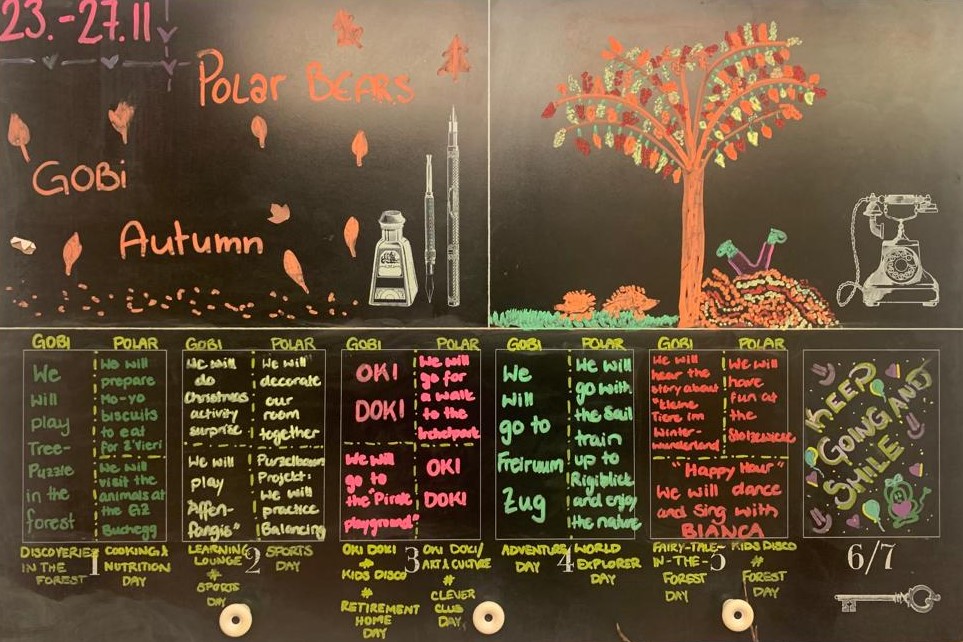 23.-27.11
Polar BEARS
GOBi
Autumn
GOBI POLAR
We
Will
play
Tree-
Puzzle
in the
forest
We will
prepare
Mo-yo
biscuits
to eat
for z'Vieri
We will
visit the
animals at
the GZ
Buchegg
DISCOVERIES
IN THE
FOREST
1
COOKING &
NUTRITION
DAY
GOBI POLAR
We will
do
Christmas
activity
surprise
We will
decorate
our
room
together
We will
play
"Affen-
fangis"
Purzelbaum
Projekt:
We will
practice
Balancing
LEARNING
LOUNGE
#
SPORTS
DAY
2
SPORTS
DAY
GOBI POLAR
OKI
DOKI
We will
go for
a walk
to the
We will
go to
the "Pirate
playground"
OKI
DOKI
OKI DOKI
#
KIDS DISCO
#
RETIREMENT
HOME
DAY
3
OKI DOKI/
ART & CULTURE
#
CLEVER
CLUB
DAY
GOBI POLAR
We
Will
go to
Freiruum
Zug
We will
go with
the Sail
train
up to
Rigiblick
and enjoy
the nature
ADVENTURE
DAY
4
WORLD
EXPLORER
DAY
GOBI POLAR
We will
hear the
story about
"kleine
Tiere im
Winter-
wunderland
We will
have
fun at
the
"Happy Hour"
We will dance
and sing with
BIANCA
FAIRY-TALE-
IN-THE-
FOREST
DAY
5
KIDS DISCO
#
FOREST
DAY
KEEP
GOING AND
SMILE
6/7